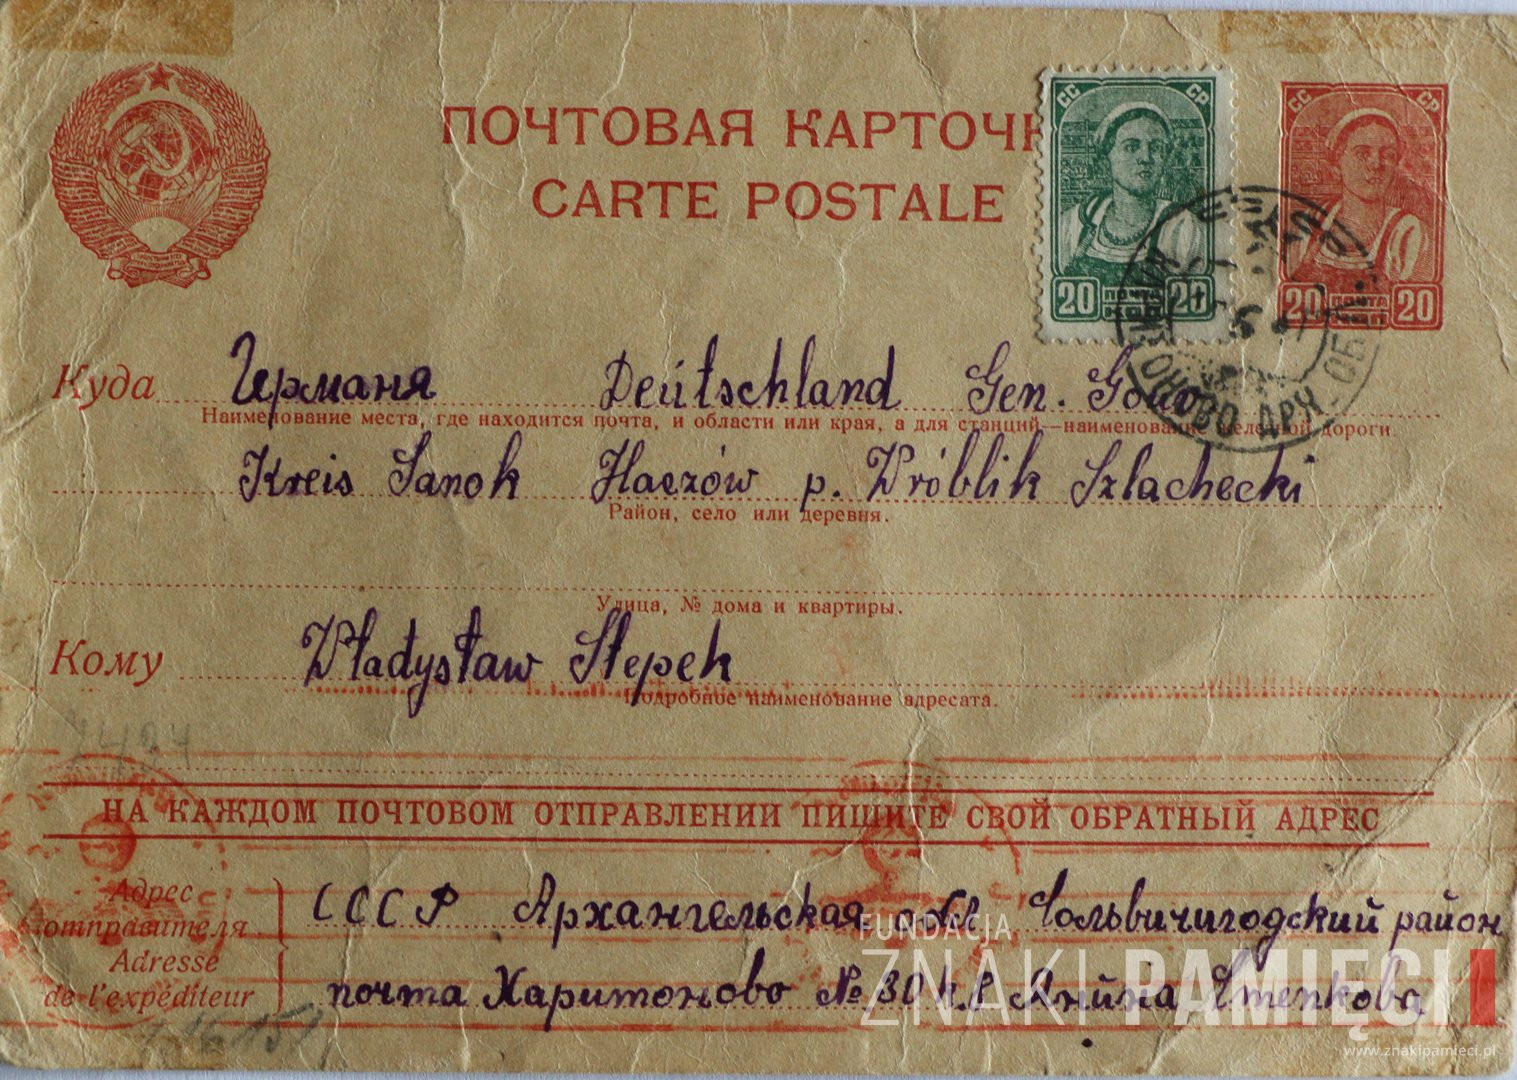 ПОЧТОВАЯ КАРТОЧК
CARTE POSTALE
СС СР
20 ПОЧТА КОП 20
СС СР
20 ПОЧТА КОП 20
Куда Германя Deutschland Gen. Gouv
Наименование места, где находится почта, и области или края, а для станций—наименование железной дороги.
Kreis Sanok Haczów p. Wróblik Szlachecki
Район, село или деревня.
Улица, № дома и квартиры.
Кому Władysław Stepek
Подробное наименование адресата.
НА КАЖДОМ ПОЧТОВОМ ОТПРАВЛЕНИИ ПИШИТЕ СВОЙ ОБРАТНЫЙ АДРЕС
Адрес отправителя
Adresse de l'expéditeur
СССР Архангельская обл Сольвичигодский район
почта Харитоново № 30 кв Янина Степкова
FUNDACJA
ZNAKI PAMIĘCI
www.znakipamieci.pl